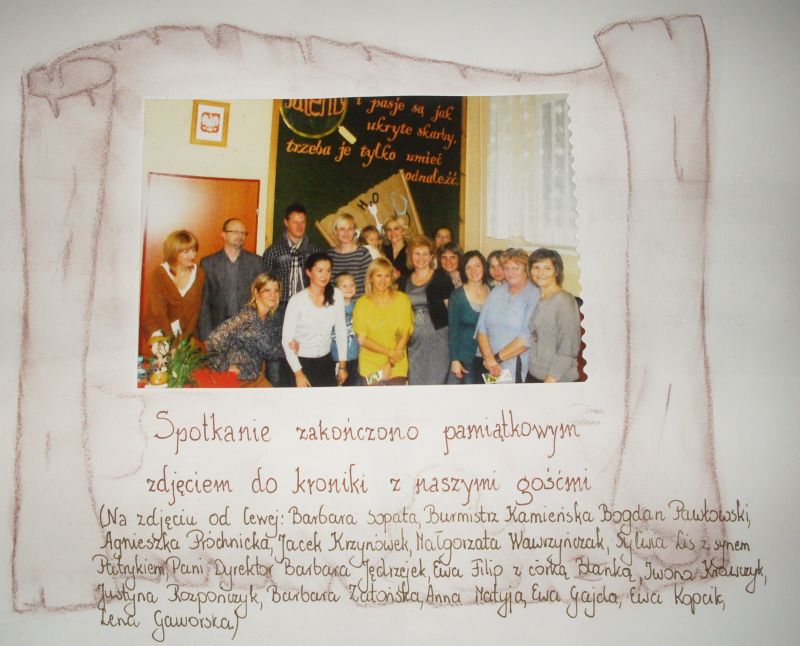 Talenty i pasje są jak
ukryte skarby,
trzeba je tylko umieć
odnaleźć.
H₂O
Spotkanie zakończono pamiątkowym
zdjęciem do kroniki z naszymi gośćmi
(Na zdjęciu od lewej: Barbara Sopata, Burmistrz Kamieńska Bogdan Pawłowski,
Agnieszka Próchnicka, Jacek Krzynówek, Małgorzata Wawrzyńczak, Sylwia Lis z synem
Patrykiem, Pani Dyrektor Barbara Jędrzejek, Ewa Filip z córką Blanką, Iwona Krawczyk,
Justyna Rozpończyk, Barbara Zatońska, Anna Matyja, Ewa Gajda, Ewa Kopcik,
Lena Gaworska)